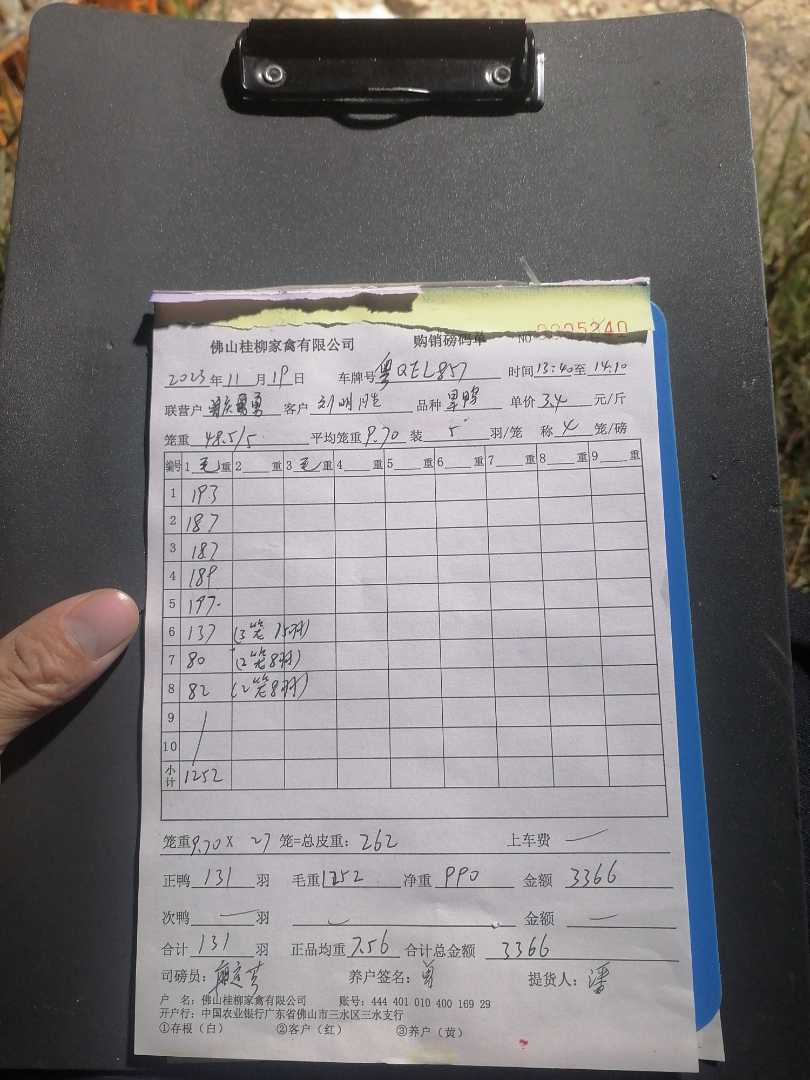 佛山桂柳家禽有限公司 购销磅码单 NO 0005240
2023年11月19日 车牌号粤QEL857 时间13:40至14:10
联营户 客户刘明 品种 单价3.4元/斤
笼重48.5/5 平均笼重9.70装5羽/笼 称4笼/磅
编号 1毛重 2重 3毛重 4重 5重 6重 7重 8重 9重
1 193
2 187
3 187
4 189
5 197
6 137 (3笼15羽)
7 80 (2笼8羽)
8 82 (2笼8羽)
9
10
小计 1252
笼重9.70X27笼=总皮重:262 上车费
正鸭131羽 毛重1252净重990 金额3366
次鸭羽 金额
合计131羽 正品均重7.56合计总金额3366
司磅员: 养户签名: 提货人:潘
户 名:佛山桂柳家禽有限公司 账号:444 401 010 400 169 29
开户行:中国农业银行广东省佛山市三水区三水支行
①存根(白) ②客户(红) ③养户(黄)